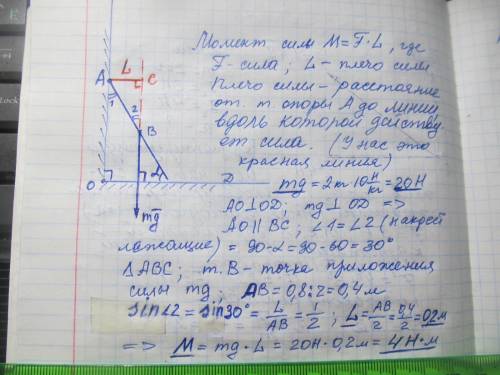 Момент силы M = F·L, где
F - сила; L - плечо силы
Плечо силы - расстояние
от т. опоры A до линии,
вдоль которой действу
ет сила. (У нас это
красная линия)
L
A
C
1
2
B
α
O
D
mg
mg = 2кг·10 Н/кг = 20Н
AO⊥OD; mg⊥OD =>
AO∥BC; ∠1=∠2 (накрест
лежащие) = 90-α = 90-60 = 30°
ΔABC; т. B - точка приложения
силы mg; AB = 0,8:2 = 0,4 м
sin∠2 = sin30° = L/AB = 1/2; L = AB/2 = 0,4/2 = 0,2м
=> M = mg·L = 20Н·0,2м = 4Н·м